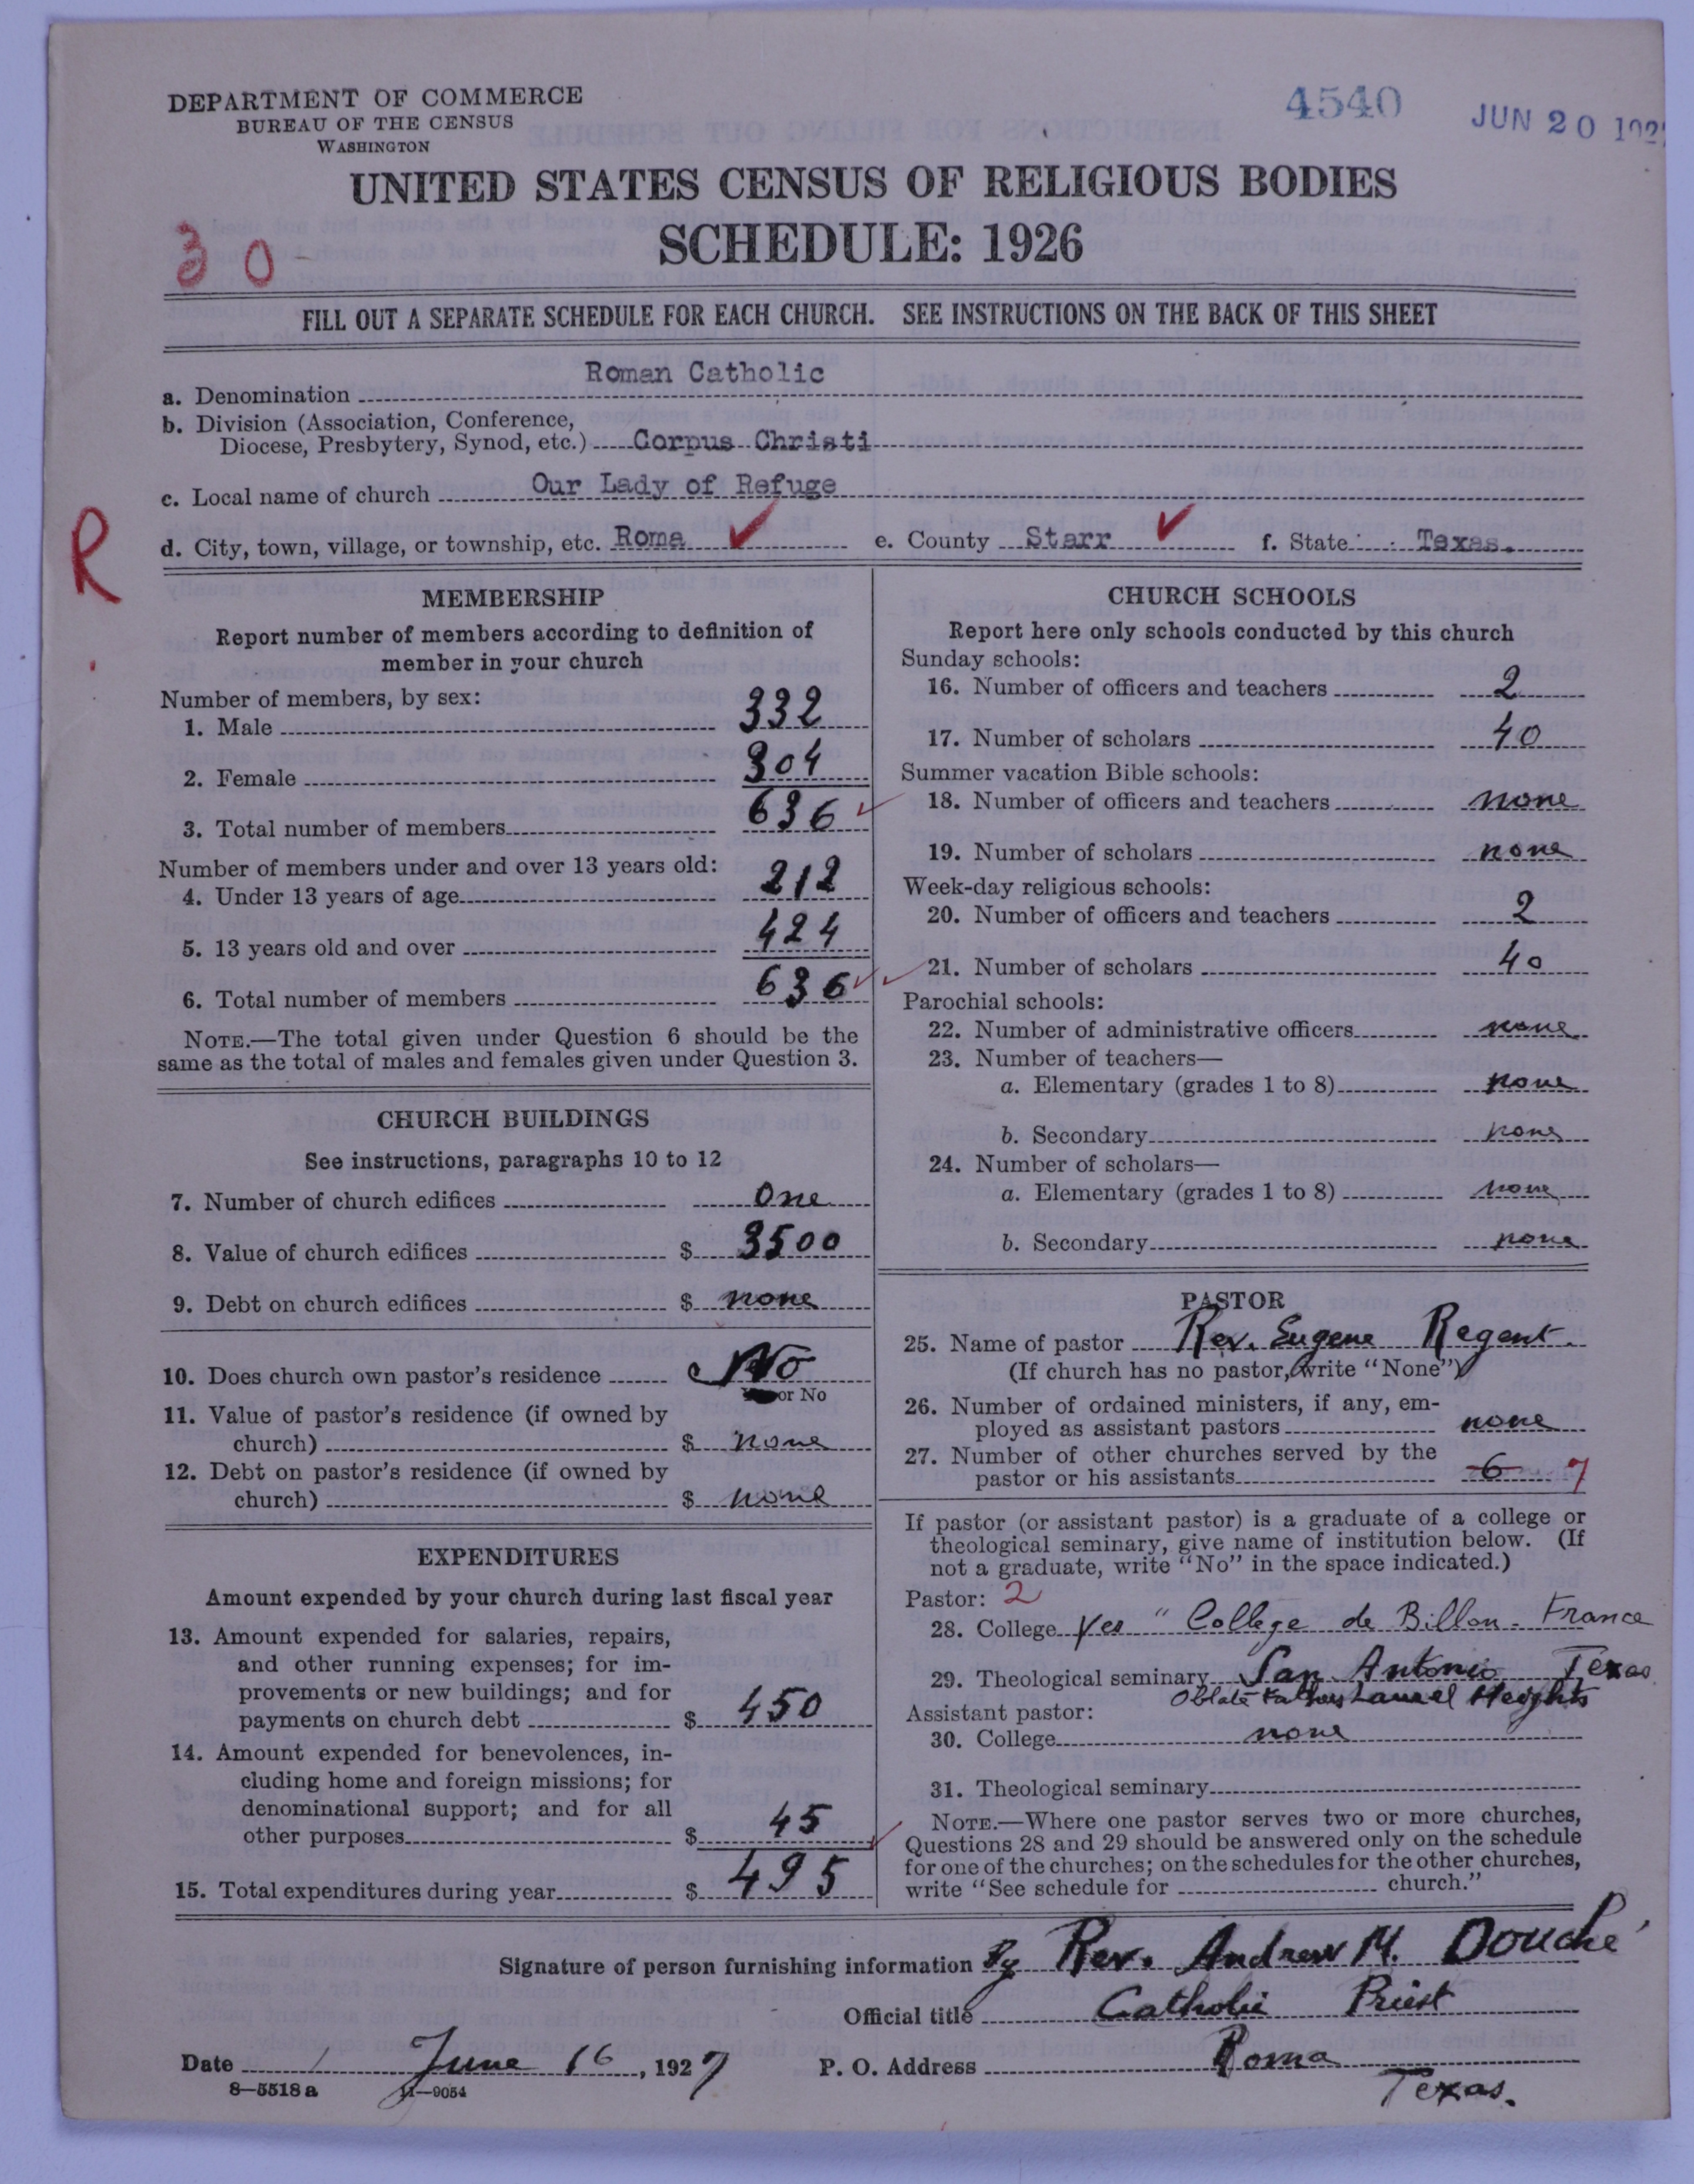 DEPARTMENT OF COMMERCE
BUREAU OF THE CENSUS
WASHINGTON
4540
JUN 20 192
UNITED STATES CENSUS OF RELIGIOUS BODIES
SCHEDULE: 1926
30
FILL OUT A SEPARATE SCHEDULE FOR EACH CHURCH. SEE INSTRUCTIONS ON THE BACK OF THIS SHEET
a. Denomination Roman Catholic
b. Division (Association, Conference,
Diocese, Presbytery, Synod, etc.) Corpus Christi
c. Local name of church Our Lady of Refuge
R
d. City, town, village, or township, etc. Roma ✓ e. County Starr ✓ f. State Texas.
MEMBERSHIP
Report number of members according to definition of
member in your church
Number of members, by sex:
1. Male 332
2. Female 304
3. Total number of members 636 ✓
Number of members under and over 13 years old:
4. Under 13 years of age 212
5. 13 years old and over 424
6. Total number of members 636 ✓ ✓
NOTE.—The total given under Question 6 should be the
same as the total of males and females given under Question 3.
CHURCH BUILDINGS
See instructions, paragraphs 10 to 12
7. Number of church edifices One
8. Value of church edifices $ 3500
9. Debt on church edifices $ none
10. Does church own pastor's residence No
or No
11. Value of pastor's residence (if owned by
church) $ none
12. Debt on pastor's residence (if owned by
church) $ none
EXPENDITURES
Amount expended by your church during last fiscal year
13. Amount expended for salaries, repairs,
and other running expenses; for im-
provements or new buildings; and for
payments on church debt $ 450
14. Amount expended for benevolences, in-
cluding home and foreign missions; for
denominational support; and for all
other purposes $ 45 ✓
15. Total expenditures during year $ 495
CHURCH SCHOOLS
Report here only schools conducted by this church
Sunday schools:
16. Number of officers and teachers 2
17. Number of scholars 40
Summer vacation Bible schools:
18. Number of officers and teachers none
19. Number of scholars none
Week-day religious schools:
20. Number of officers and teachers 2
21. Number of scholars 40
Parochial schools:
22. Number of administrative officers none
23. Number of teachers—
a. Elementary (grades 1 to 8) none
b. Secondary none
24. Number of scholars—
a. Elementary (grades 1 to 8) none
b. Secondary none
PASTOR
25. Name of pastor Rev. Eugene Regent.
(If church has no pastor, write "None")
26. Number of ordained ministers, if any, em-
ployed as assistant pastors none
27. Number of other churches served by the
pastor or his assistants 6 7
If pastor (or assistant pastor) is a graduate of a college or
theological seminary, give name of institution below. (If
not a graduate, write "No" in the space indicated.)
Pastor: 2
28. College Yes " College de Billon - France
29. Theological seminary San Antonio Texas
Oblate Fathers Laurel Heights
Assistant pastor:
30. College none
31. Theological seminary
NOTE.—Where one pastor serves two or more churches,
Questions 28 and 29 should be answered only on the schedule
for one of the churches; on the schedules for the other churches,
write "See schedule for church."
Signature of person furnishing information By Rev. Andrew M. Douché
Official title Catholic Priest
Date June 16, 1927 P. O. Address Roma
Texas.
8—5518a 11—9054